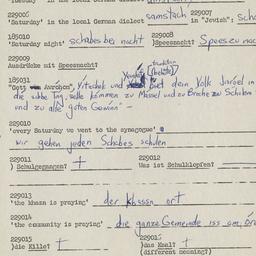 229006
'Saturday' in the local German dialect samstach 229007
in "Jewish": scha
185010
'Saturday night' schabes bei nacht 229008
)Speesnacht?
229009
Ausdrücke mit Speesnacht?
185031
"Gott Avrohon", Yitschok und behit dein Volk Jisroel in
die Woche Tag, solle kommen zu Massel und zu Broche zu Schulem
und zu alle guten Gewinn" -
229010
'every Saturday we went to the synagogue'
wir gehen jeden Schabes schulen
229011
) Schulgegangen? +
229012
Was ist Schulklopfen?
229013
'the khasn is praying' der khassn ort
229014
'the community is praying' die ganze Gemeinde iss am oren
229015
)die Kille? +
)das Kaal? +
(different meaning?)